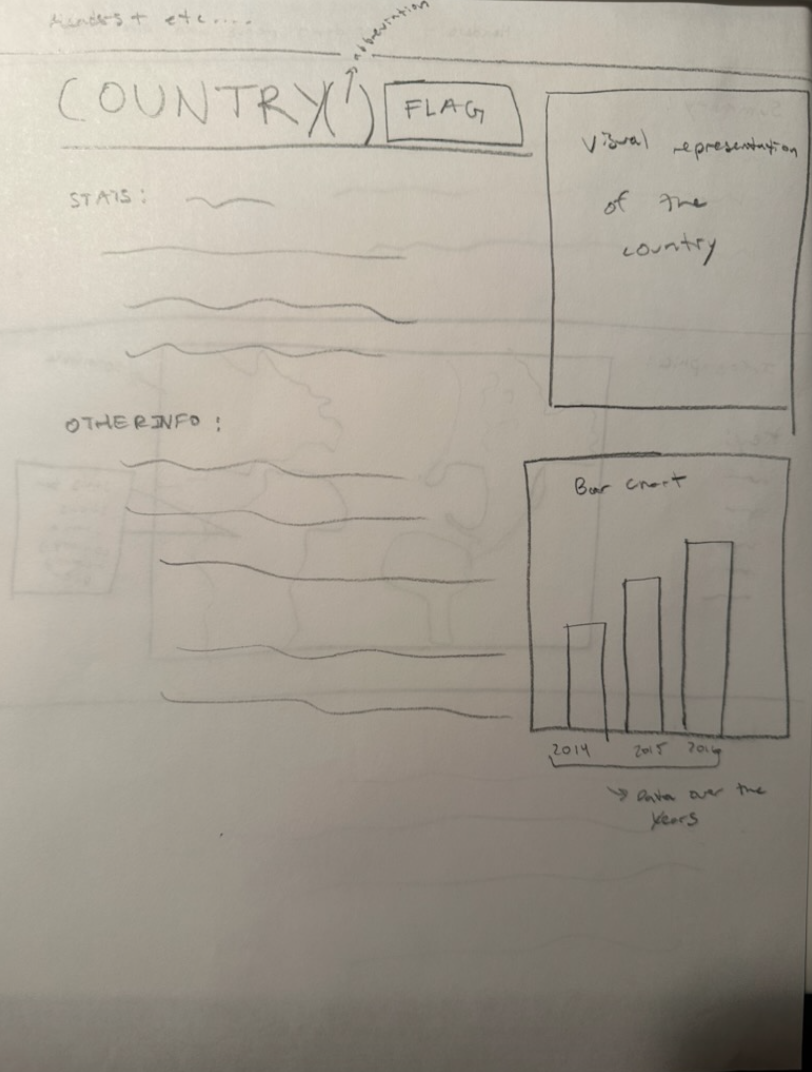 etc....
abbreviation
COUNTRY( )
FLAG
STATS:
Visual representation
of the
country
OTHER INFO:
Bar chart
2014 2015 2016
Data over the
years